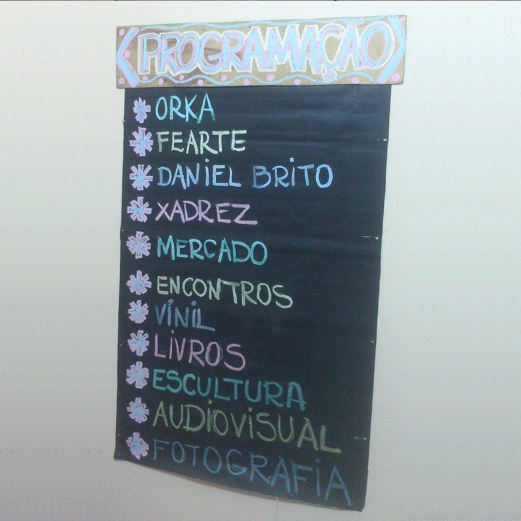 PROGRAMAÇÃO
ORKA
FEARTE
DANIEL BRITO
XADREZ
MERCADO
ENCONTROS
VÍNIL
LIVROS
ESCULTURA
AUDIOVISUAL
FOTOGRAFIA